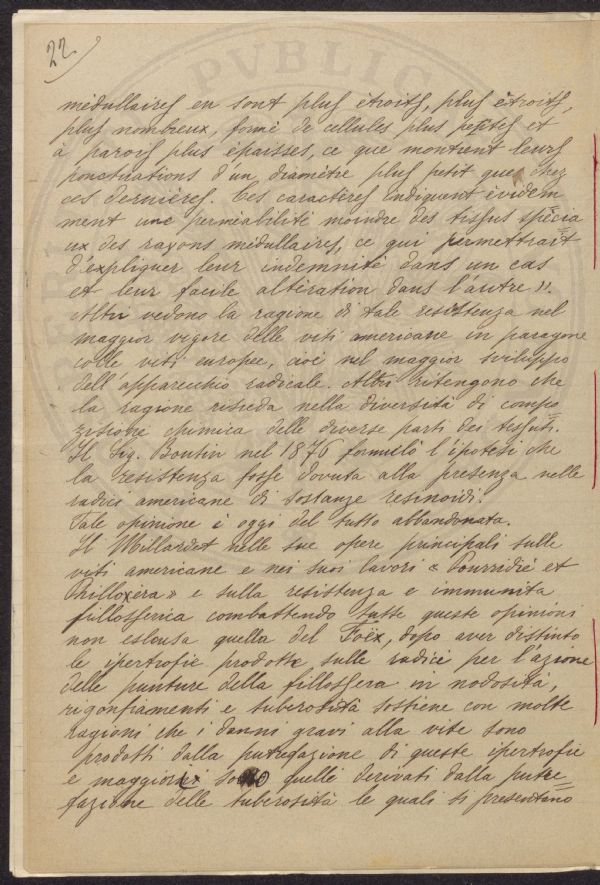 22
médullaires en sont plus étroits, plus étroits,
plus nombreux, formé de cellules plus petites et
à parois plus épaisses, ce que montrent leurs
ponctuations d'un diamètre plus petit que chez
ces dernières. Ces caractères indiquent évidem
ment une perméabilité moindre des tissus spécia
ux des rayons médullaires, ce qui permettrait
d'expliquer leur indemnité dans un cas
et leur facile altération dans l'autre ».
Altri vedono la ragione di tale resistenza nel
maggior vigore delle viti americane in paragone
colle viti europee, cioé nel maggior sviluppo
dell'apparecchio radicale. Altri ritengono che
la ragione risieda nella diversità di compo=
sizione chimica delle diverse parti dei tessuti.
Il Sig. Boutin nel 1876 formulò l'ipotesi che
la resistenza fosse dovuta alla presenza nelle
radici americane di sostanze resinoidi.
Tale opinione è oggi del tutto abbandonata.
Il Millardet nelle sue opere principali sulle
viti americane e nei suoi lavori « Pourridié et
Philloxera » e sulla resistenza e immunita
fillosserica combattendo tutte queste opinioni
non esclusa quella del Foëx, dopo aver distinto
le ipertrofie prodotte sulle radici per l'azione
delle punture della fillossera in nodosità,
rigonfiamenti e tuberosità sostiene con molte
ragioni che i danni gravi alla vite sono
prodotti dalla putrefazione di queste ipertrofie
e maggiori sono quelli derivati dalla putre=
fazione delle tuberosità le quali si presentano
PVBLIC